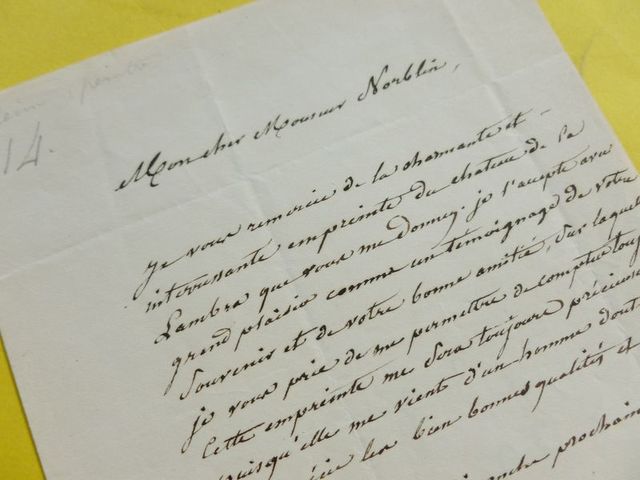 14.
Mon cher Monsieur Norblin,
Je vous remercie de la charmante et
interressante empreinte du chateau de la
Lambra que vous me donnez. je l'accepte avec
grand plaisir comme un témoignage de votre
Souvenir et de votre bonne amitié, Sur laquel
je vous prie de me permettre de compter touj
Cette empreinte me Sera toujours précieuse
puisqu'elle me vient d'un homme dont
les bien bonnes qualités et
prochain